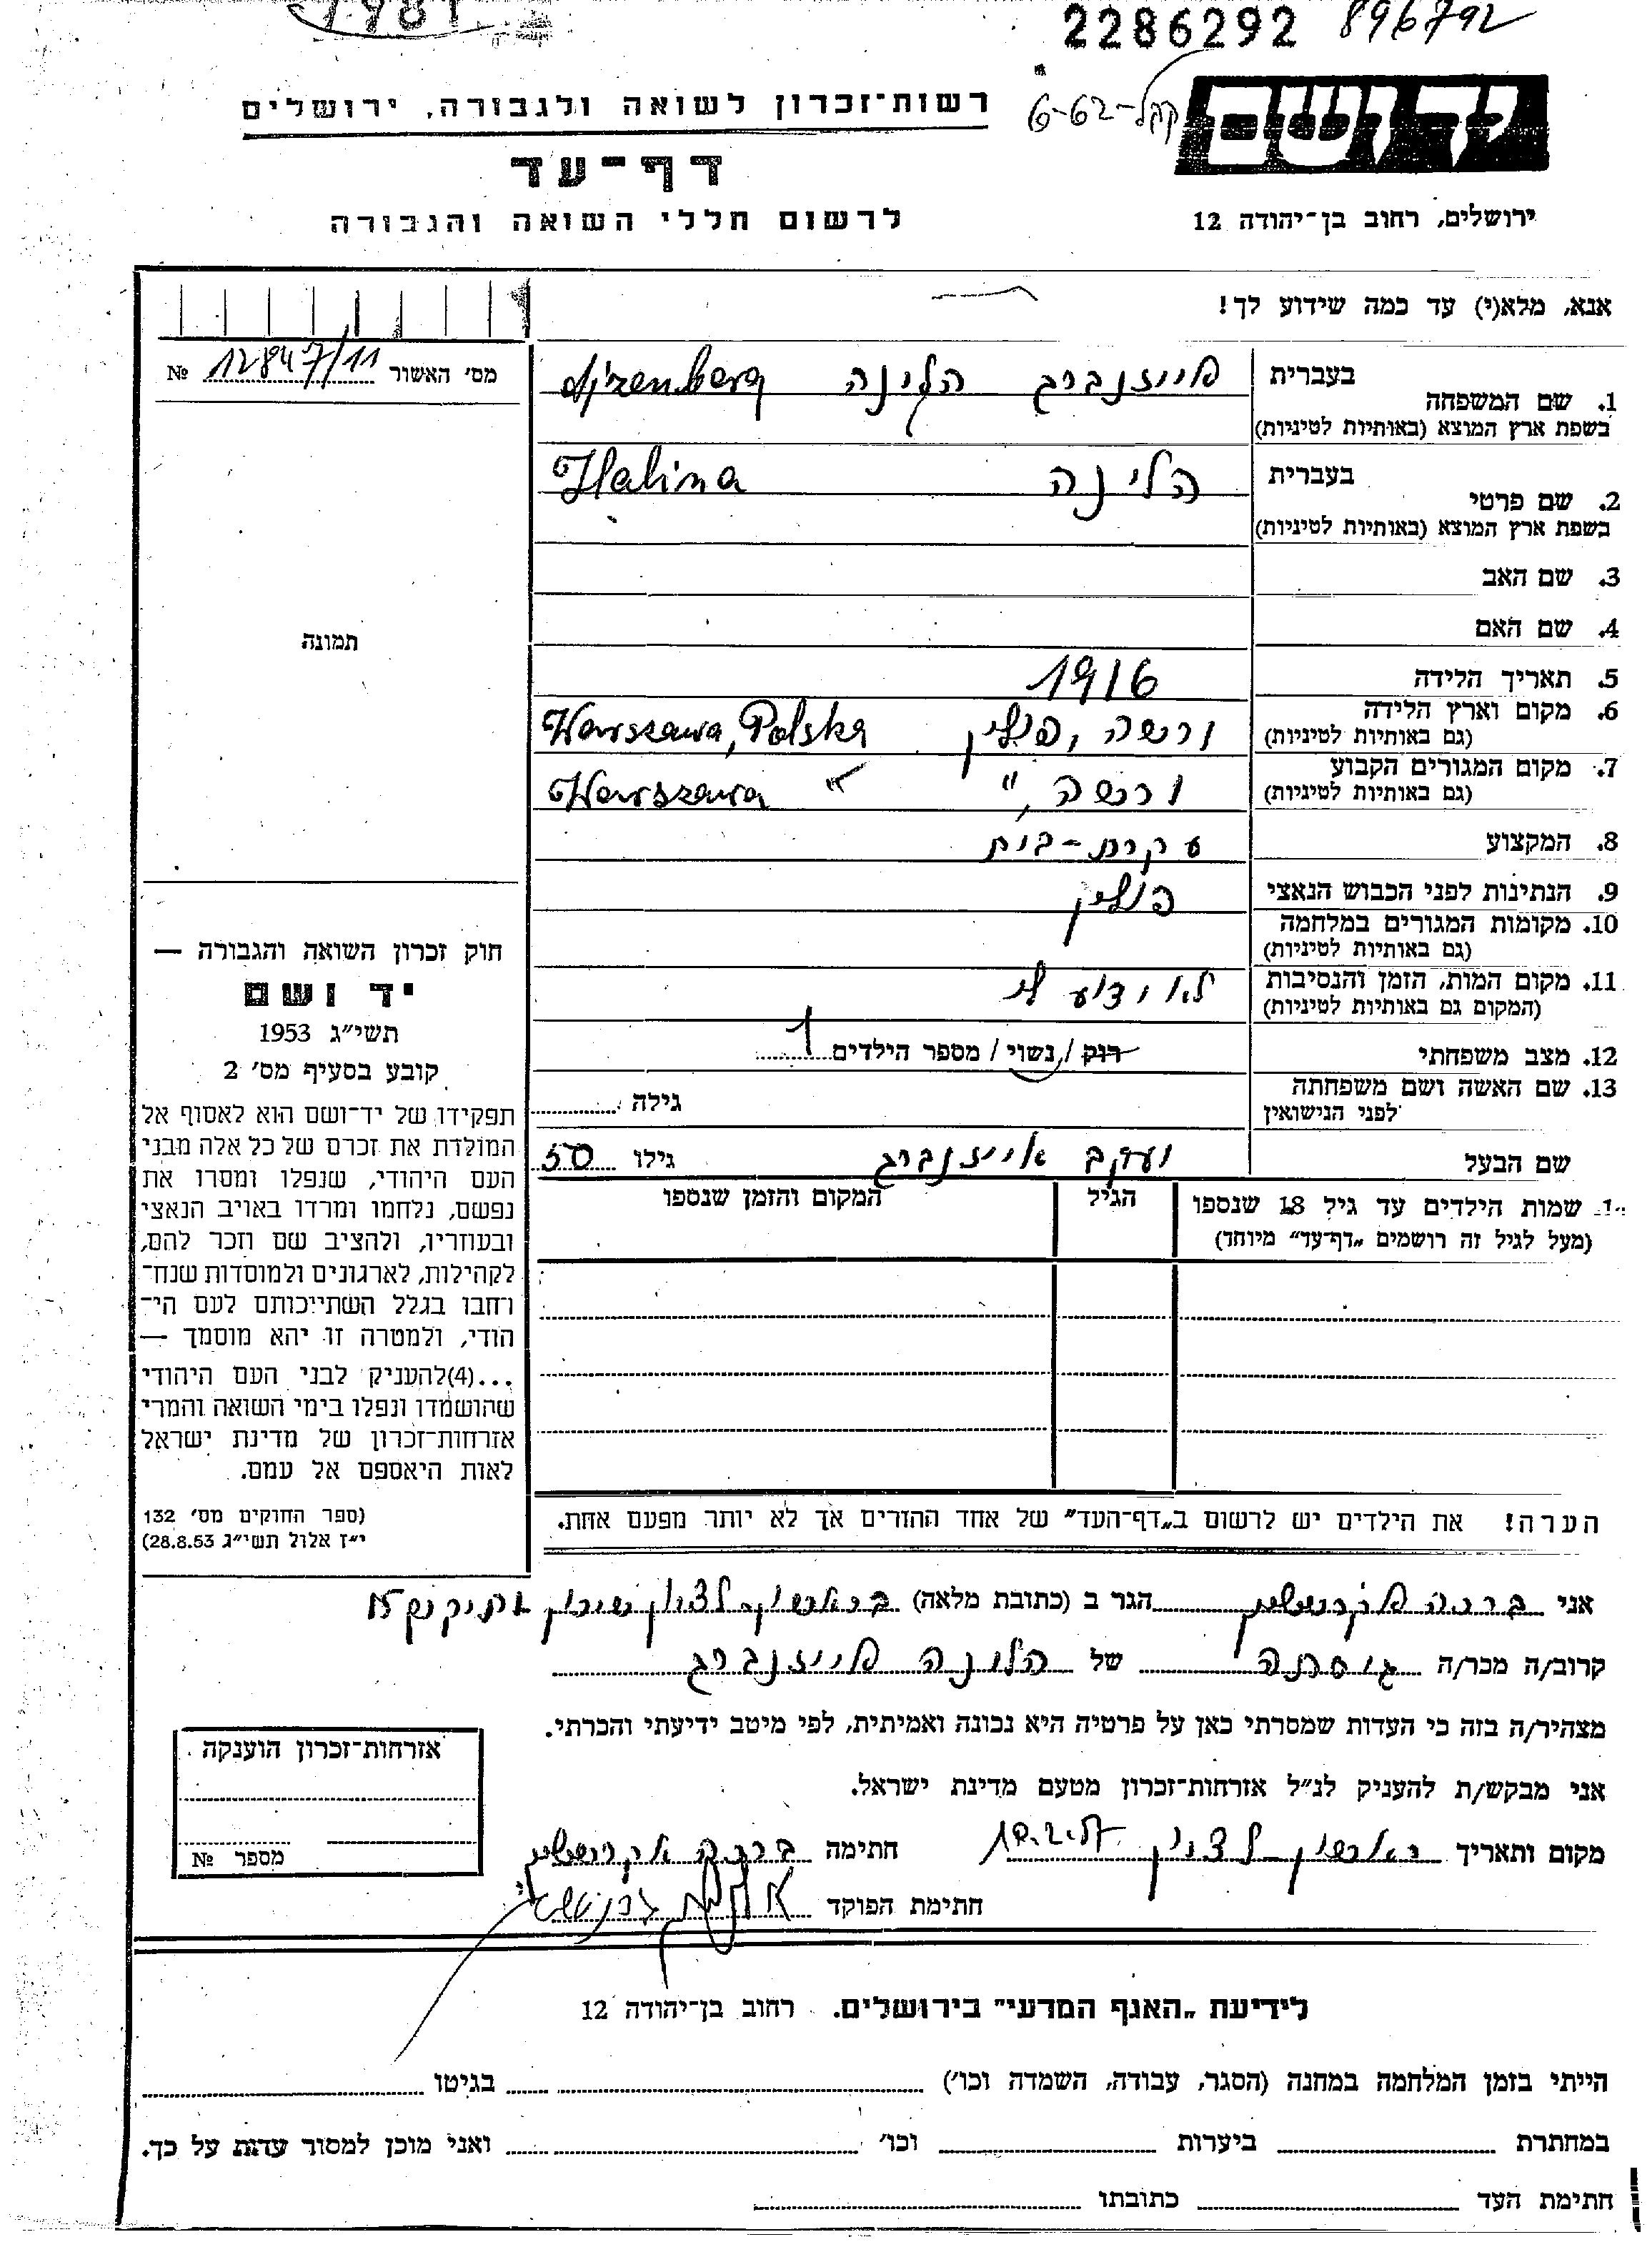 1981
2286292 896792
יד ושם
רשות־זכרון לשואה ולגבורה, ירושלים
דף־עד
לרשום חללי השואה והגבורה
ירושלים, רחוב בן־יהודה 12
אנא, מלא(י) עד כמה שידוע לך!
מס׳ האשור 12847/11 №
תמונה
1. שם המשפחה בעברית אייזנברג הלינה Ajzenberg
בשפת ארץ המוצא (באותיות לטיניות)
2. שם פרטי בעברית הלינה Halina
בשפת ארץ המוצא (באותיות לטיניות)
3. שם האב
4. שם האם
5. תאריך הלידה 1916
6. מקום וארץ הלידה ורשה, פולין Warszawa, Polska
(גם באותיות לטיניות)
7. מקום המגורים הקבוע ורשה, " Warszawa "
(גם באותיות לטיניות)
8. המקצוע עקרת-בית
9. הנתינות לפני הכבוש הנאצי פולין
10. מקומות המגורים במלחמה
(גם באותיות לטיניות)
11. מקום המות, הזמן והנסיבות לא ידוע לי
(המקום גם באותיות לטיניות)
12. מצב משפחתי רוק / נשוי / מספר הילדים 1
13. שם האשה ושם משפחתה
לפני הנישואין
גילה
שם הבעל יעקב אייזנברג גילו 50
שמות הילדים עד גיל 18 שנספו הגיל המקום והזמן שנספו
(מעל לגיל זה רושמים „דף־עד" מיוחד)
חוק זכרון השואה והגבורה —
יד ושם
תשי״ג 1953
קובע בסעיף מס׳ 2
תפקידו של יד־ושם הוא לאסוף אל
המולדת את זכרם של כל אלה מבני
העם היהודי, שנפלו ומסרו את
נפשם, נלחמו ומרדו באויב הנאצי
ובעוזריו, ולהציב שם וזכר להם,
לקהילות, לארגונים ולמוסדות שנח־
רבו בגלל השתייכותם לעם הי־
הודי, ולמטרה זו יהא מוסמך —
...(4)להעניק לבני העם היהודי
שהושמדו ונפלו בימי השואה והמרי
אזרחות־זכרון של מדינת ישראל
לאות היאספם אל עמם.
(ספר החוקים מס׳ 132
י״ז אלול תשי״ג 28.8.53)
הערה! את הילדים יש לרשום ב„דף־העד" של אחד ההורים אך לא יותר מפעם אחת.
אני ברכה הגר ב (כתובת מלאה) בראשון-לצion שיכון
קרוב/ה מכר/ה גיסתה של הלינה אייזנברג
מצהיר/ה בזה כי העדות שמסרתי כאן על פרטיה היא נכונה ואמיתית, לפי מיטב ידיעתי והכרתי.
אני מבקש/ת להעניק לנ״ל אזרחות־זכרון מטעם מדינת ישראל.
מקום ותאריך ראשון לציון חתימה ברכה
חתימת הפוקד
אזרחות־זכרון הוענקה
מספר №
לידיעת „האגף המדעי" בירושלים. רחוב בן־יהודה 12
הייתי בזמן המלחמה במחנה (הסגר, עבודה, השמדה וכו׳) בגיטו
במחתרת ביערות וכו׳ ואני מוכן למסור עדות על כך.
חתימת העד כתובתו